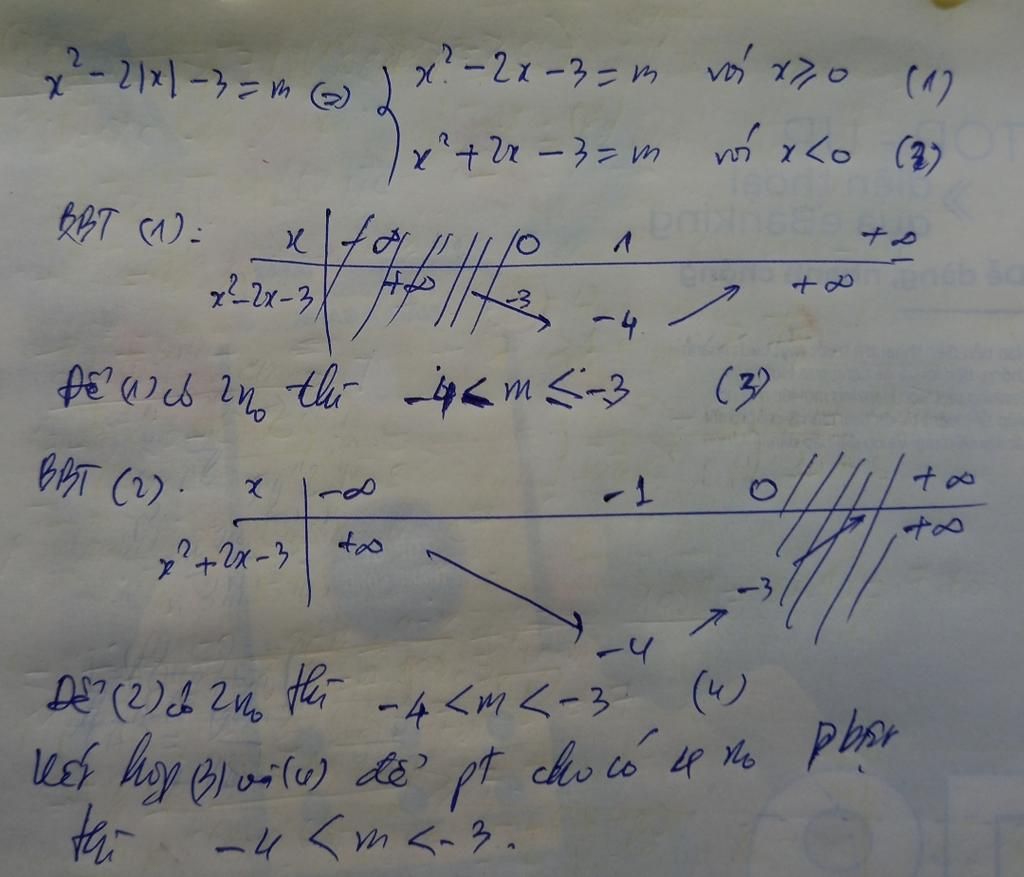 x² - 2|x| - 3 = m (=) { x² - 2x - 3 = m với x ≥ 0 (1)
x² + 2x - 3 = m với x < 0 (2)
BBT (1):
x -∞ 0 1 +∞
x² - 2x - 3 +∞ -3 -4 +∞
Để (1) có 2 n₀ thì -4 < m ≤ -3 (3)
BBT (2).
x -∞ -1 0 +∞
x² + 2x - 3 +∞ -4 -3 +∞
Để (2) có 2 n₀ thì -4 < m < -3 (4)
Kết hợp (3) với (4) để pt cho có 4 n₀ pbiệt
thì -4 < m < -3.
TOP - UP
điện thoại
qua eBanking